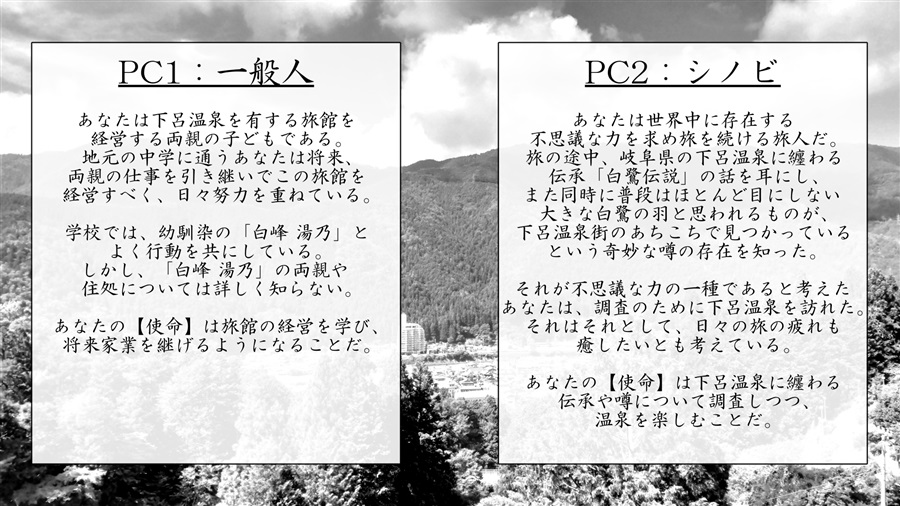 PC1：一般人
あなたは下呂温泉を有する旅館を
経営する両親の子どもである。
地元の中学に通うあなたは将来、
両親の仕事を引き継いでこの旅館を
経営すべく、日々努力を重ねている。
学校では、幼馴染の「白峰 湯乃」と
よく行動を共にしている。
しかし、「白峰 湯乃」の両親や
住処については詳しく知らない。
あなたの【使命】は旅館の経営を学び、
将来家業を継げるようになることだ。
PC2：シノビ
あなたは世界中に存在する
不思議な力を求め旅を続ける旅人だ。
旅の途中、岐阜県の下呂温泉に纏わる
伝承「白鷺伝説」の話を耳にし、
また同時に普段はほとんど目にしない
大きな白鷺の羽と思われるものが、
下呂温泉街のあちこちで見つかっている
という奇妙な噂の存在を知った。
それが不思議な力の一種であると考えた
あなたは、調査のために下呂温泉を訪れた。
それはそれとして、日々の旅の疲れも
癒したいとも考えている。
あなたの【使命】は下呂温泉に纏わる
伝承や噂について調査しつつ、
温泉を楽しむことだ。